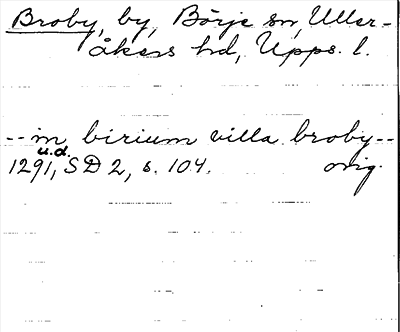 Broby, by, Börje sn, Uller-
åkers hd, Upps. l.
-- in birium villa broby --
u.d.
1291, SD 2, s. 104. orig.